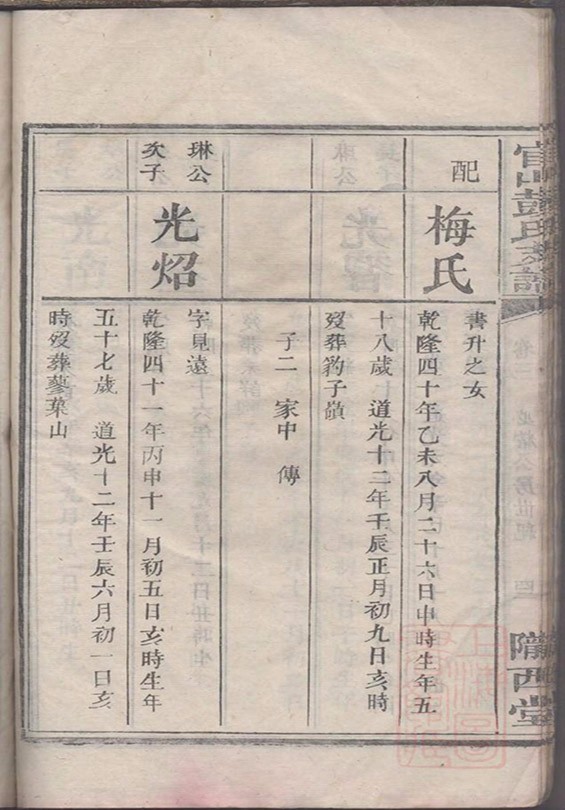 官山彭氏支譜
隴西堂
配
梅氏
書升之女
乾隆四十年乙未八月二十六日申時生年五
十八歲　道光十二年壬辰正月初九日亥時
歿葬豹子嶺
子二　家中　傳
琳公
次子
光炤
字見遠
乾隆四十一年丙申十一月初五日亥時生年
五十七歲　道光十二年壬辰六月初一日亥
時歿葬蓼葉山